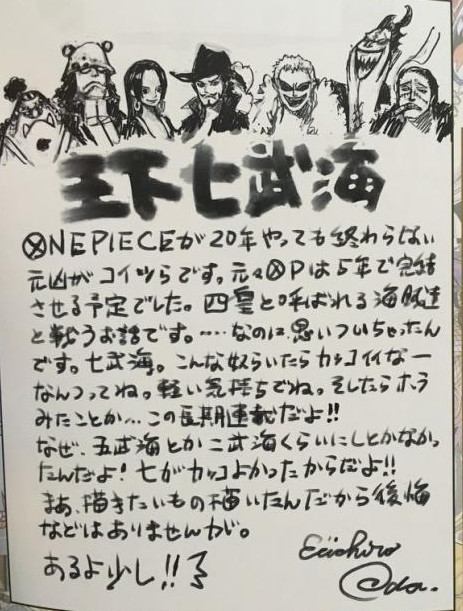 王下七武海
ⓍNEPIECEが20年やっても終わらない
元凶がコイツらです。元々ⓍPは5年で完結
させる予定でした。四皇と呼ばれる海賊達
と戦うお話です。……なのに思いついちゃったん
です。七武海。こんな奴らいたらカッコイイなー
なんつってね。軽い気持ちでね。そしたらホラ
みたことか…この長期連載だよ!!
なぜ、五武海とか二武海くらいにしとかなかっ
たんだよ!七がカッコよかったからだよ!!
まあ、描きたいもの描いたんだから後悔
などはありませんが。
あるよ少し!!
Eiichiro
Oda.